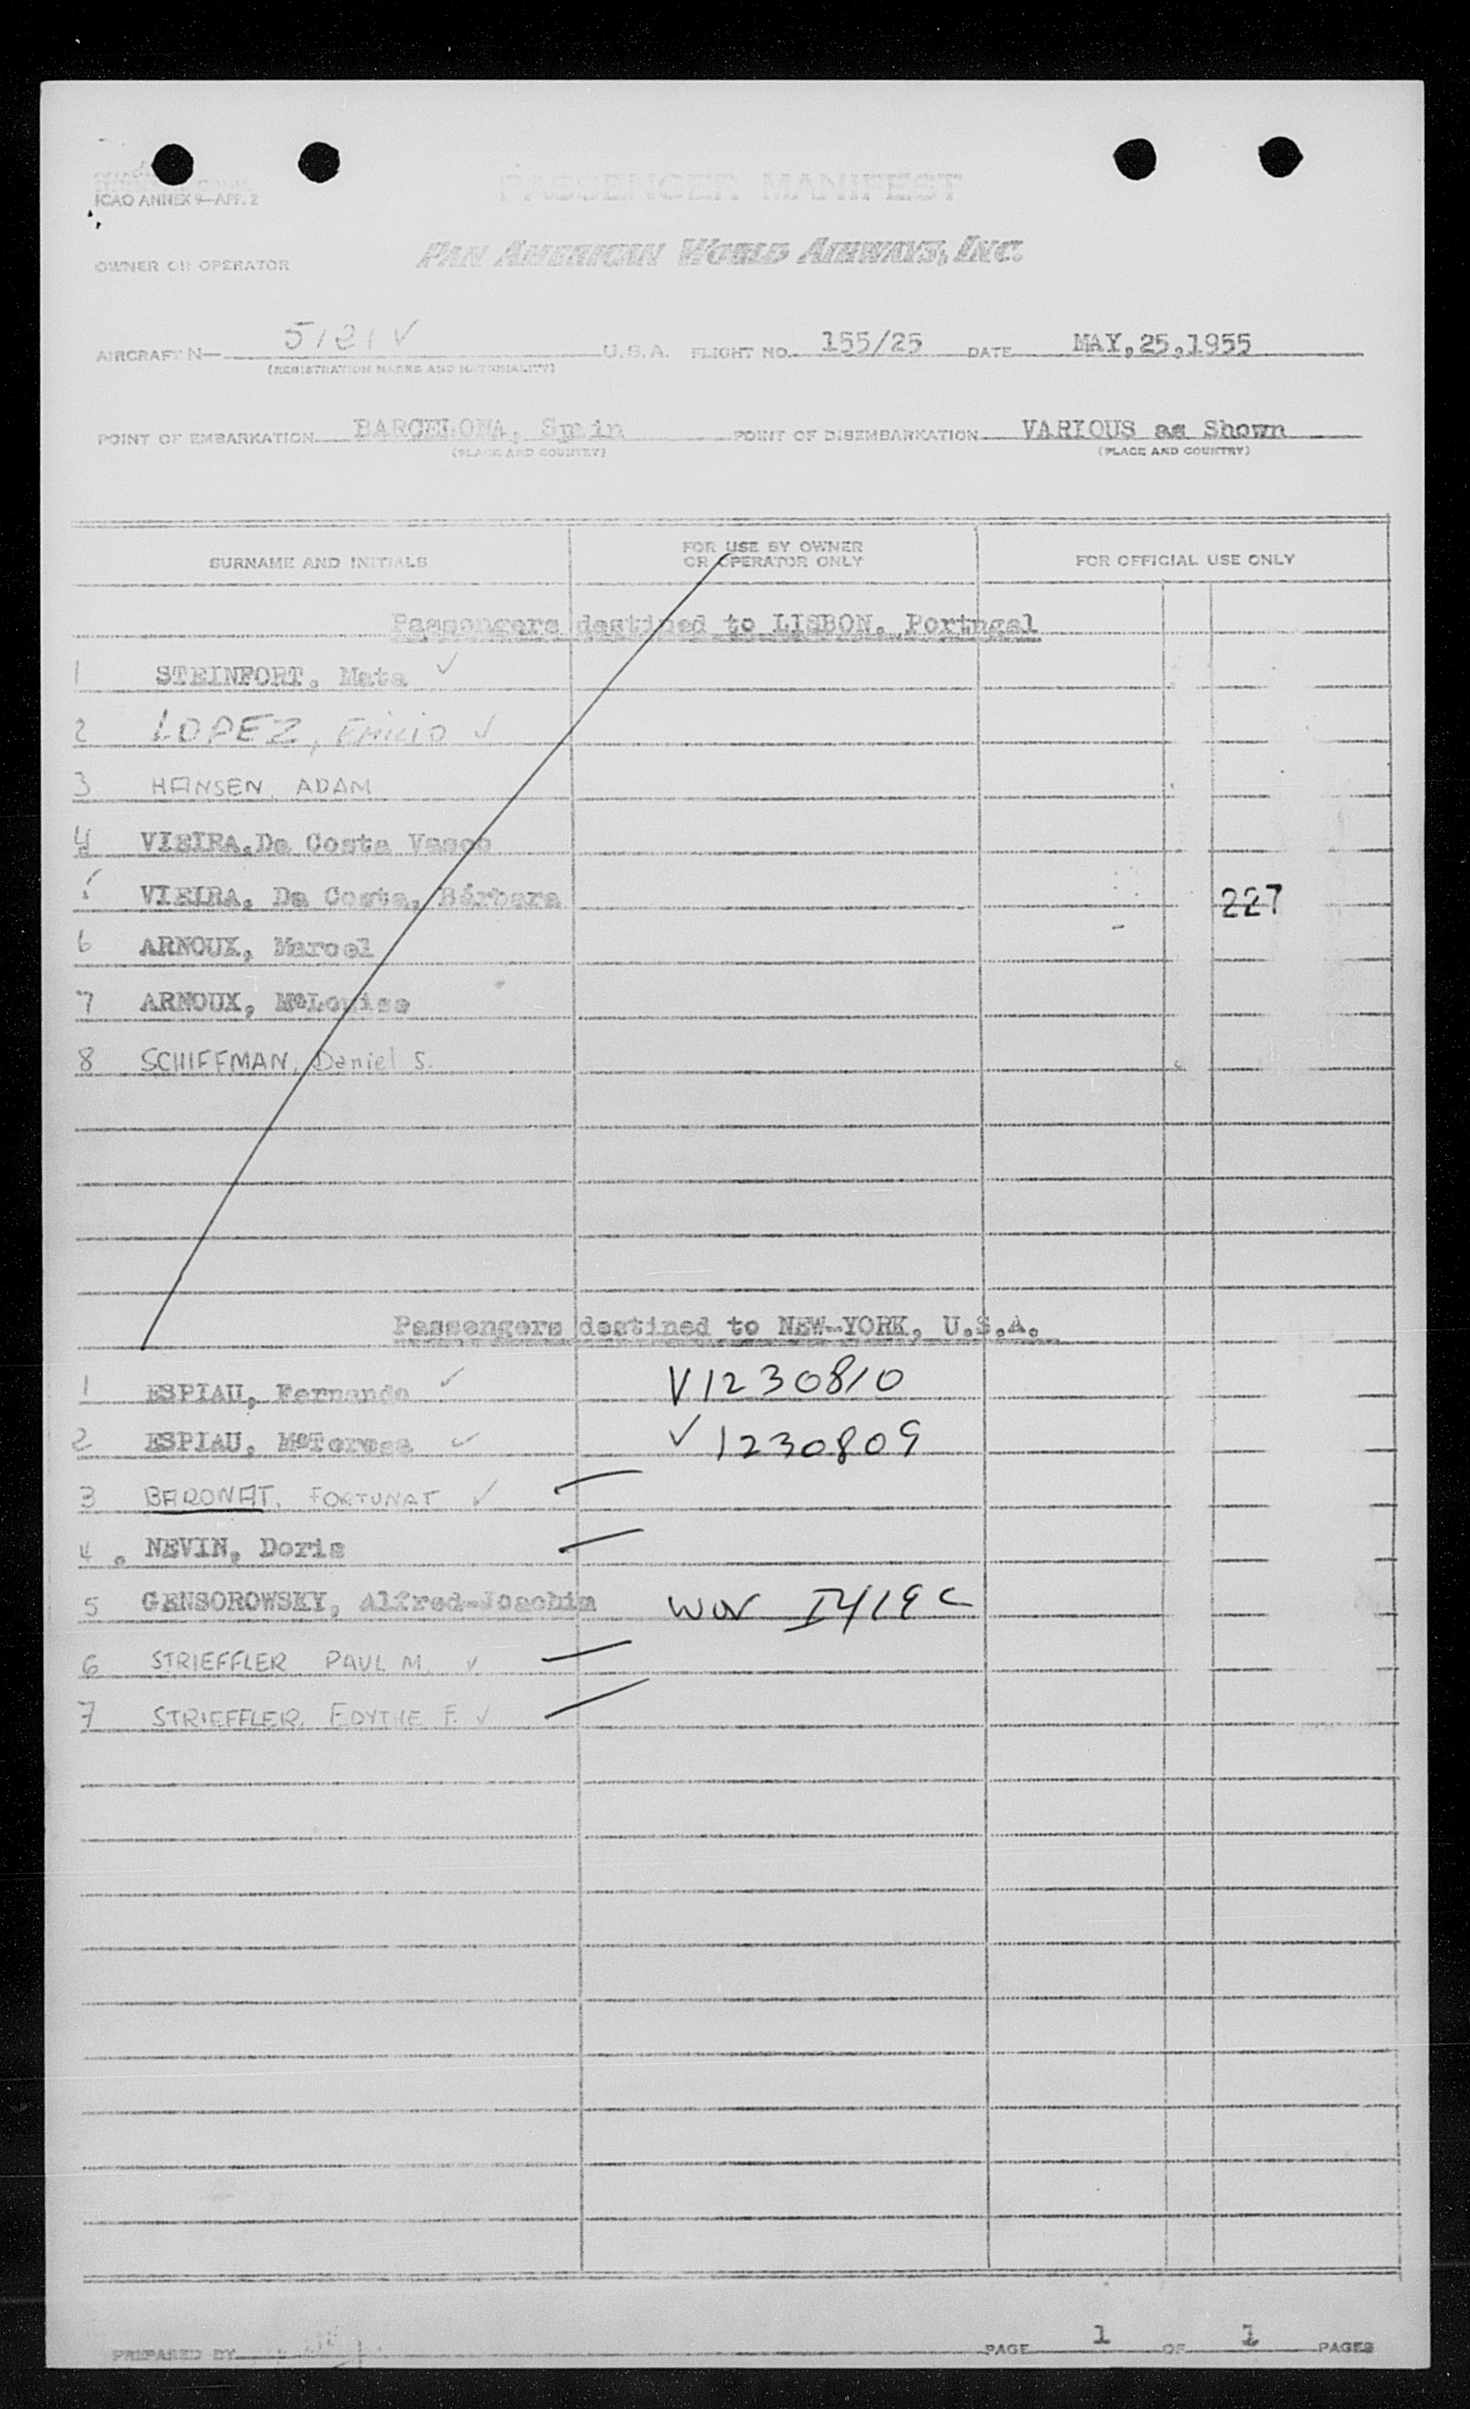 PASSENGER MANIFEST
ICAO ANNEX 9—APP. 2
OWNER OR OPERATOR PAN AMERICAN WORLD AIRWAYS, INC.
AIRCRAFT N— 5121V U.S.A. FLIGHT NO. 155/25 DATE MAY,25,1955
(REGISTRATION MARKS AND NATIONALITY)
POINT OF EMBARKATION BARCELONA, Spain POINT OF DISEMBARKATION VARIOUS as Shown
(PLACE AND COUNTRY) (PLACE AND COUNTRY)
SURNAME AND INITIALS FOR USE BY OWNER OR OPERATOR ONLY FOR OFFICIAL USE ONLY
Passengers destined to LISBON. Portugal
1 STEINFORT. Mata ✓
2 LOPEZ, EMILIO ✓
3 HANSEN, ADAM
4 VIEIRA.Da Costa Vasco
VIEIRA. Da Costa, Bárbara 227
6 ARNOUX, Marcel
7 ARNOUX, MªLouise
8 SCHIFFMAN, Daniel S.
Passengers destined to NEW-YORK, U.S.A.
1 ESPIAU, Fernando ✓ V1230810
2 ESPIAU, MªTeresa ✓ ✓ 1230809
3 BARONAT, FORTUNAT ✓
4 . NEVIN, Doris
5 GENSOROWSKY, Alfred-Joachim
6 STRIEFFLER PAUL M. ✓
7 STRIEFFLER, EDYTHE F. ✓
PREPARED BY PAGE 1 OF 1 PAGES